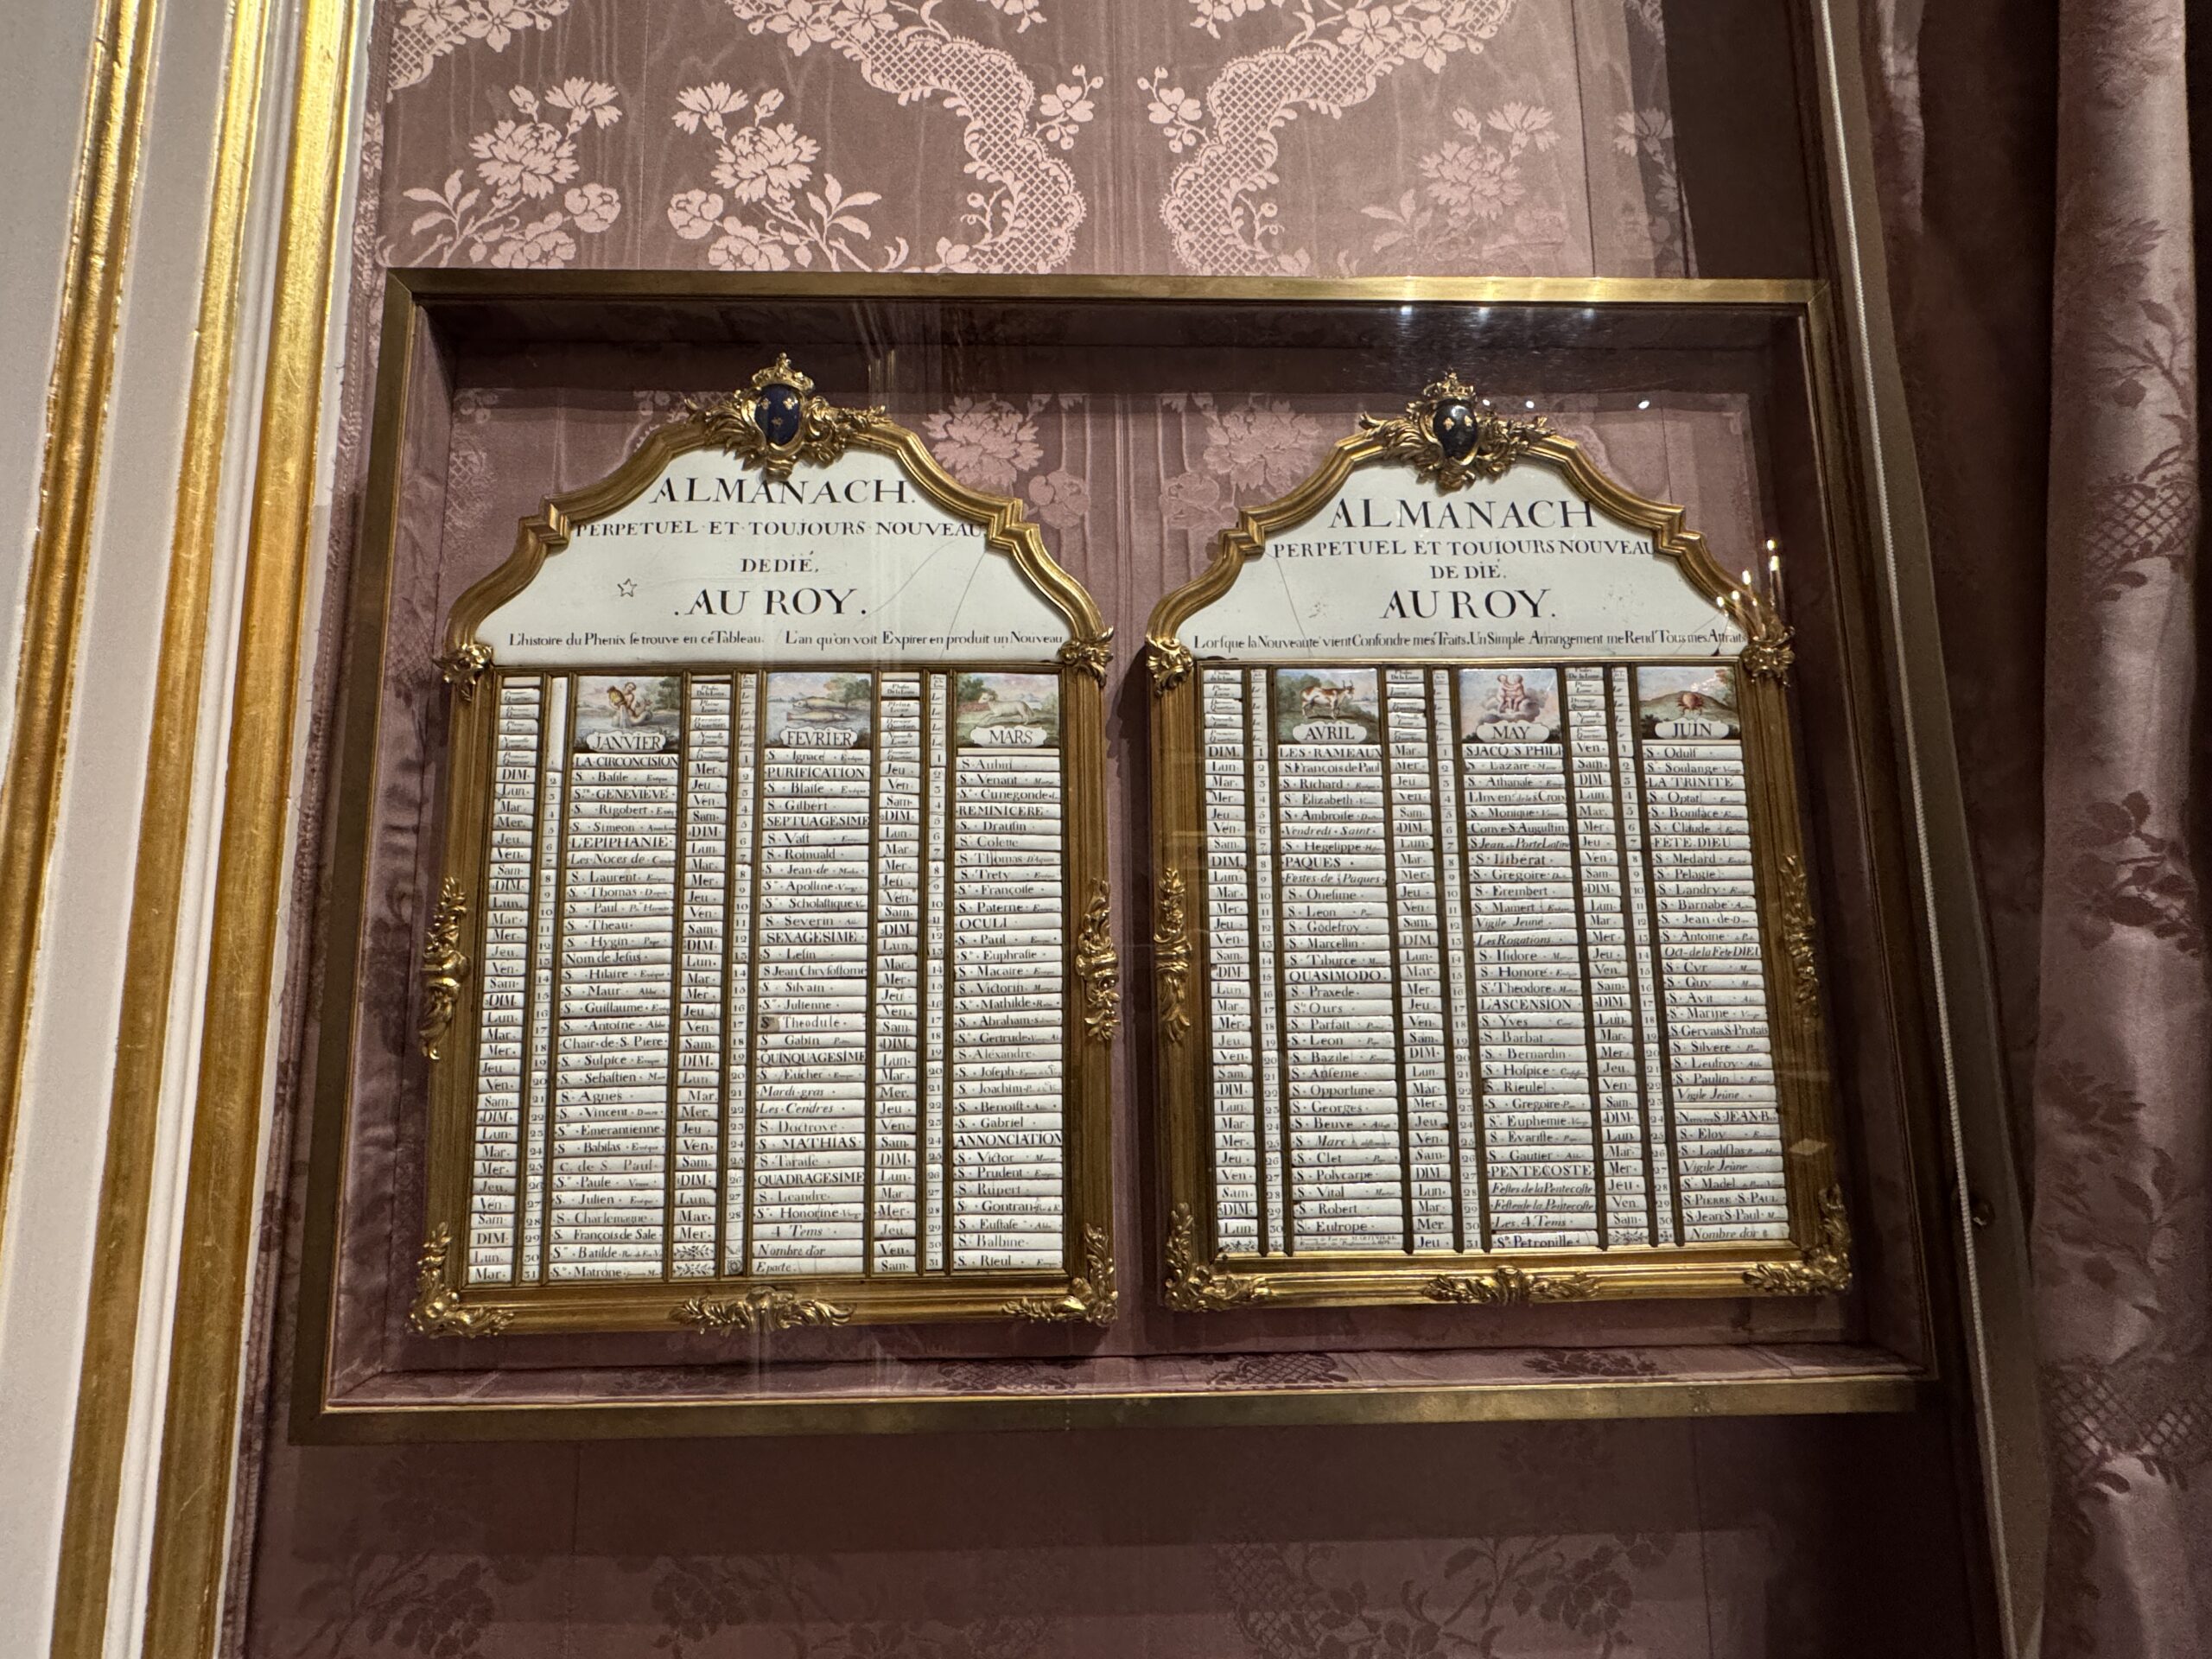 ALMANACH.
PERPETUEL ET TOUJOURS NOUVEAU
DEDIÉ.
.AU ROY.
L'histoire du Phenix se trouve en cé Tableau. L'an qu'on voit Expirer en produit un Nouveau
JANVIER
LA·CIRCONCISION
DIM· 2 S. Basile
Lun· 3 Ste GENEVIEVE
Mar 4 S. Rigobert
Mer. 5 S. Simeon
Jeu 6 L'EPIPHANIE
Ven. 7 Les Noces de
Sam 8 S. Laurent
DIM. 9 S. Thomas
Lun. 10 S. Paul
Mar. 11 S. Theau
Mer. 12 S. Hygin
Jeu. 13 Nom de Jesus
Ven· 14 S. Hilaire
Sam· 15 S. Maur
DIM. 16 S. Guillaume
Lun. 17 S. Antoine
Mar. 18 Chair de S. Piere
Mer. 19 S. Sulpice
Jeu 20 S. Sebastien
Ven. 21 S. Agnes
Sam. 22 S. Vincent
DIM. 23 Ste Emerantienne
Lun· 24 S. Babilas
Mar· 25 C. de S. Paul
Mer. 26 Ste Paule
Jeu. 27 S. Julien
Ven· 28 S. Charlemagne
Sam· 29 S. François de Sale
DIM· 30 Ste Batilde
Lun. 31 Ste Matrone
Mar·
FEVRIER
1 S. Ignace
Mer. 2 PURIFICATION
Jeu 3 S. Blaise
Ven. 4 S. Gilbert
Sam· 5 SEPTUAGESIME
DIM· 6 S. Vast
Lun. 7 S. Romuald
Mar· 8 S. Jean de
Mer. 9 Ste Apolline
Jeu. 10 Ste Scholastique
Ven· 11 S. Severin
Sam· 12 SEXAGESIME
DIM· 13 S. Lesin
Lun. 14 S Jean Chrysostome
Mar. 15 S. Silvain
Mer. 16 Ste Julienne
Jeu 17 S Theodule
Ven· 18 S Gabin
Sam· 19 QUINQUAGESIME
DIM. 20 S. Eucher
Lun. 21 Mardi-gras
Mar. 22 Les Cendres
Mer. 23 S. Doctrove
Jeu 24 S. MATHIAS
Ven. 25 S. Taraise
Sam. 26 QUADRAGESIME
DIM. 27 S. Leandre
Lun. 28 Ste Honorine
Mar. 4 Tems
Mer. Nombre d'or
Epacte.
MARS
S·Aubin
Jeu· 2 S. Venant
Ven· 3 Ste Cunegonde
Sam· 4 REMINICERE
DIM. 5 S. Drausin
Lun· 6 S. Colette
Mar· 7 S. Thomas
Mer· 8 S. Trety
Jeu· 9 Ste Françoise
Ven· 10 S. Paterne
Sam· 11 OCULI
DIM. 12 S. Paul
Lun. 13 Ste Euphrasie
Mar. 14 S. Macaire
Mer. 15 S. Victorin
Jeu 16 Ste Mathilde
Ven. 17 S. Abraham
Sam. 18 Ste Gertrude
DIM. 19 S·Alexandre
Lun. 20 S. Joseph
Mar. 21 S. Joachim
Mer. 22 S. Benoist
Jeu 23 S. Gabriel
Ven· 24 ANNONCIATION
Sam· 25 S. Victor
DIM. 26 S. Prudent
Lun· 27 S. Rupert
Mar· 28 S. Gontran
Mer· 29 S. Eustase
Jeu. 30 Ste Balbine
Ven· 31 S. Rieul
Sam·
ALMANACH
PERPETUEL ET TOUIOURS NOUVEAU
DE DIÉ.
AU ROY.
Lorsque la Nouveauté vient Confondre mes Traits. Un Simple Arrangement me Rend Tous mes Attraits
AVRIL
DIM. 1 LES RAMEAUX
Lun 2 S. François de Paul
Mar 3 S. Richard
Mer 4 S. Elizabeth
Jeu 5 S. Ambroise
Ven 6 Vendredi Saint
Sam· 7 S. Hegesippe
DIM. 8 PAQUES
Lun 9 Festes de Paques
Mar 10 S. Onesime
Mer 11 S. Leon
Jeu 12 S. Godefroy
Ven· 13 S. Marcellin
Sam· 14 S. Tiburce
DIM· 15 QUASIMODO.
Lun· 16 S. Praxede
Mar· 17 St Ours
Mer· 18 S. Parfait
Jeu· 19 S. Leon
Ven. 20 S. Bazile
Sam. 21 S. Anseme
DIM. 22 S. Opportune
Lun. 23 S. Georges
Mar 24 S. Beuve
Mer. 25 S. Marc
Jeu. 26 S. Clet
Ven. 27 S. Polycarpe
Sam· 28 S. Vital
DIM. 29 S. Robert
Lun. 30 S. Eutrope
MAY
Mar· 1 S JACQ. S PHILI
Mer 2 S. Lazare
Jeu 3 S. Athanase
Ven· 4 L'Inven. de la S Croix
Sam 5 S. Monique
DIM. 6 Conv·S·Augustin
Lun· 7 S Jean Porte Latine
Mar· 8 S. Liberat
Mer· 9 S. Gregoire
Jeu· 10 S. Erembert
Ven· 11 S. Mamert
Sam· 12 Vigile Jeune
DIM. 13 Les Rogations
Lun· 14 S. Isidore
Mar· 15 S. Honoré
Mer· 16 S. Theodore
Jeu· 17 L'ASCENSION
Ven· 18 S. Yves
Sam· 19 S. Barbat
DIM· 20 S. Bernardin
Lun· 21 S. Hospice
Mar· 22 S. Rieule
Mer· 23 S. Gregoire
Jeu· 24 Ste Euphemie
Ven· 25 S. Evariste
Sam· 26 S. Gautier
DIM· 27 PENTECOSTE
Lun· 28 Festes de la Pentecoste
Mar· 29 Festes de la Pentecoste
Mer· 30 Les 4 Tems
Jeu· 31 Ste Petronille
JUIN
Ven· 1 S. Odulf
Sam· 2 Ste Soulange
DIM· 3 LA TRINITÉ
Lun· 4 S. Optat
Mar· 5 S. Boniface
Mer· 6 S. Claude
Jeu· 7 FETE·DIEU
Ven· 8 S. Medard
Sam· 9 S. Pelagie
DIM· 10 S. Landry
Lun· 11 S. Barnabé
Mar· 12 S. Jean de
Mer· 13 S. Antoine
Jeu· 14 Oct de la Fete DIEU
Ven· 15 S. Cyr
Sam· 16 S. Guy
DIM· 17 S. Avit
Lun· 18 S. Marine
Mar· 19 S·Gervais S·Protais
Mer· 20 S. Silvere
Jeu· 21 S. Leufroy
Ven· 22 S. Paulin
Sam· 23 Vigile Jeune
DIM· 24 S·JEAN·B.
Lun· 25 S. Eloy
Mar· 26 S. Ladislas
Mer· 27 Vigile Jeune
Jeu· 28 St Madel
Ven· 29 S·PIERRE·S·PAUL
Sam· 30 S Jean S Paul
Nombre d'or